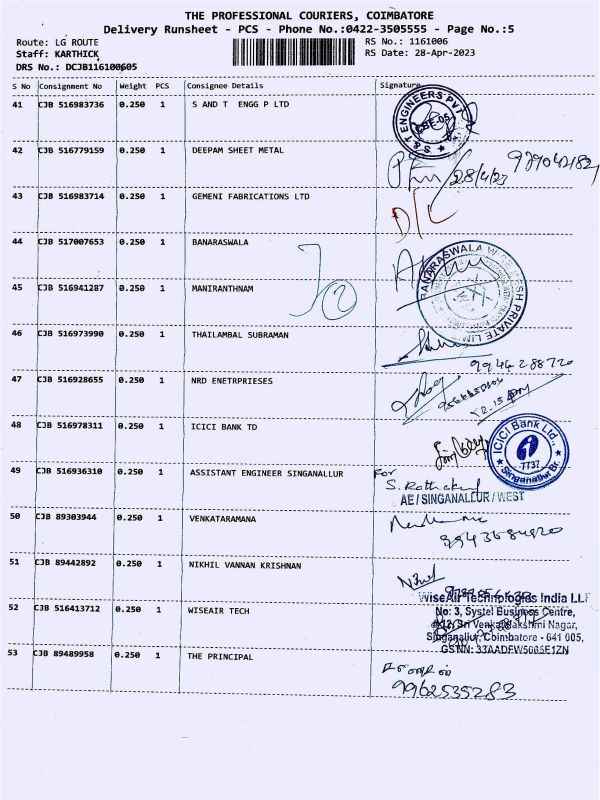 THE PROFESSIONAL COURIERS, COIMBATORE
Delivery Runsheet - PCS - Phone No.:0422-3505555 - Page No.:5
Route: LG ROUTE
RS No.: 1161006
Staff: KARTHICK
RS Date: 28-Apr-2023
DRS No.: DCJB116100605
S No Consignment No Weight PCS Consignee Details Signature
41 CJB 516983736 0.250 1 S AND T ENGG P LTD
S & T ENGINEERS PVT
CBE-05
42 CJB 516779159 0.250 1 DEEPAM SHEET METAL
28/4/23
43 CJB 516983714 0.250 1 GEMENI FABRICATIONS LTD
D/L
44 CJB 517007653 0.250 1 BANARASWALA
45 CJB 516941287 1 MANIRANTHNAM
46 CJB 516973990 0.250 1 THAILAMBAL SUBRAMAN
99442 88720
47 CJB 516928655 0.250 1 NRD ENETRPRIESES
12.15 PM
48 CJB 516978311 0.250 1 ICICI BANK TD
ICICI Bank Ltd.,
7737
Singanallur Br.
49 CJB 516936310 0.250 1 ASSISTANT ENGINEER SINGANALLUR
For
AE / SINGANALLUR / WEST
50 CJB 89303944 0.250 1 VENKATARAMANA
51 CJB 89442892 0.250 1 NIKHIL VANNAN KRISHNAN
52 CJB 516413712 0.250 1 WISEAIR TECH
WiseAir Technologies India LLP
No: 3, Systel Business Centre,
Sri Venkatalakshmi Nagar,
Singanallur, Coimbatore - 641 005,
GSTNN: 33AADFW5005E1ZN
53 CJB 89489958 0.250 1 THE PRINCIPAL
9962535283